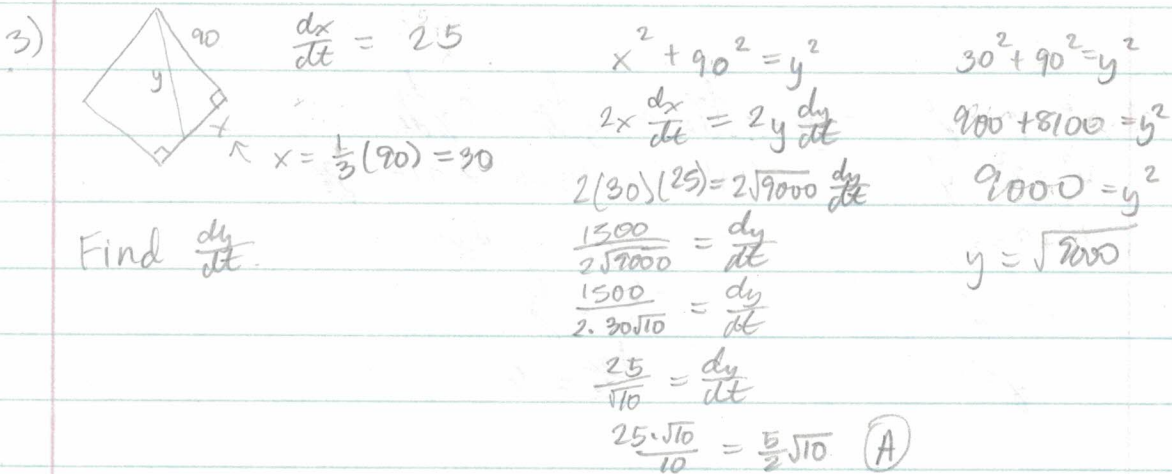 3)
90
y
x
dx/dt = 25
x = 1/3 (90) = 30
Find dy/dt.
x² + 90² = y²
2x dx/dt = 2y dy/dt
2(30)(25) = 2√9000 dy/dt
1500/2√9000 = dy/dt
1500/2·30√10 = dy/dt
25/√10 = dy/dt
25·√10/10 = 5/2 √10 (A)
30² + 90² = y²
900 + 8100 = y²
9000 = y²
y = √9000